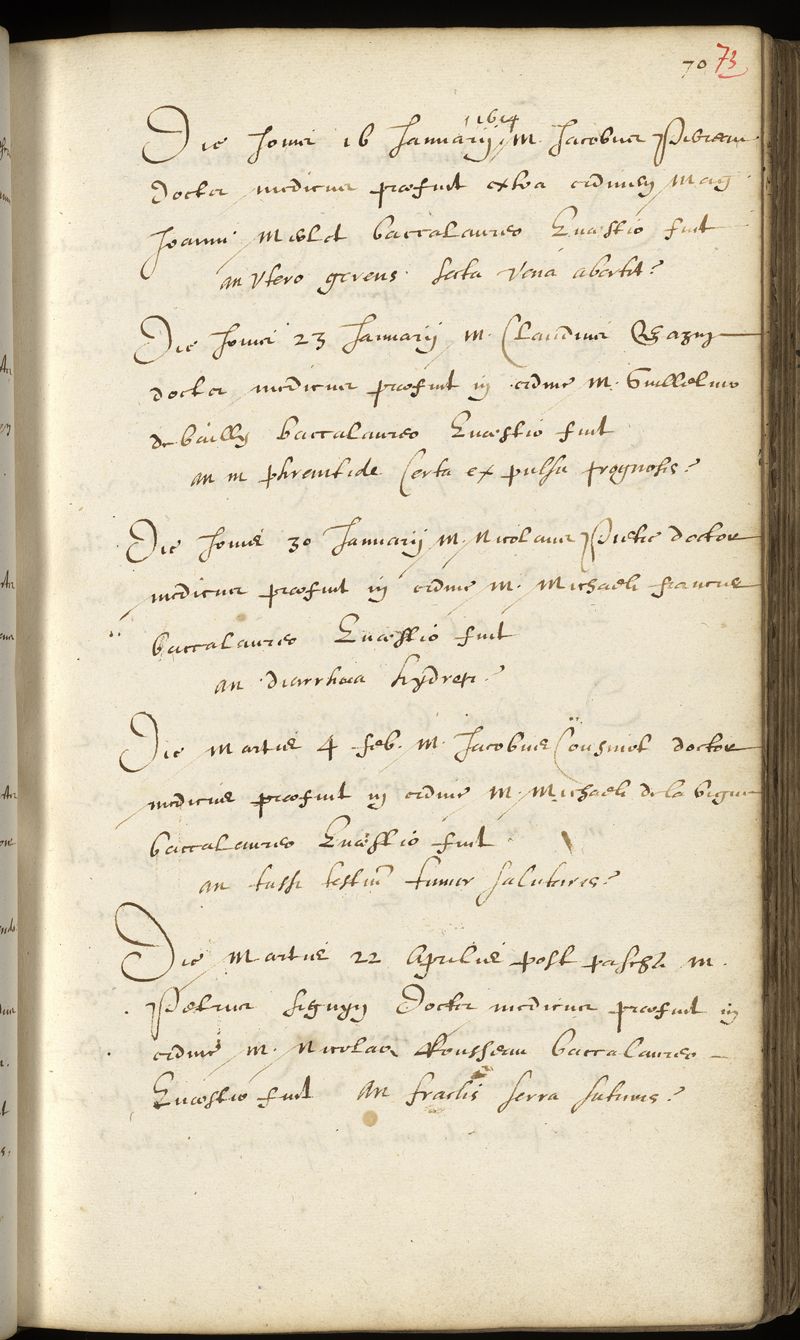 70 73
1614
Die Jovis 16 Januarij M. Jacobus Piereau
doctor medicus præfuit extra ordinem Mag
Joanni Mielet baccalaureo Quæstio fuit
an Utero gerens secta vena abortit?
Die Jovis 23 Januarij M. Claudius Chazny
doctor medicus præfuit in ordine M. Guillelmo
de bailly baccalaureo Quæstio fuit
an in phrenitide Certa ex pulsu prognosis?
Die Jovis 30 Januarij M. Nicolaus Pietre doctor
medicus præfuit in ordine M. Michaeli francus
baccalaureo Quæstio fuit
an diarrhœa hydropi?
Die Martis 4 feb. M. Jacobus Cousinot doctor
medicus præfuit in ordine M. Michaeli de la Vigne
baccalaureo Quæstio fuit
an tussi testiũ tumor salutaris?
Die Martis 22 Aprilis post pascha M.
Petrus Seguyn Doctor medicus præfuit in
ordine M. Nicolao Rousseau baccalaureo
Quæstio fuit An fractis serra suturis?